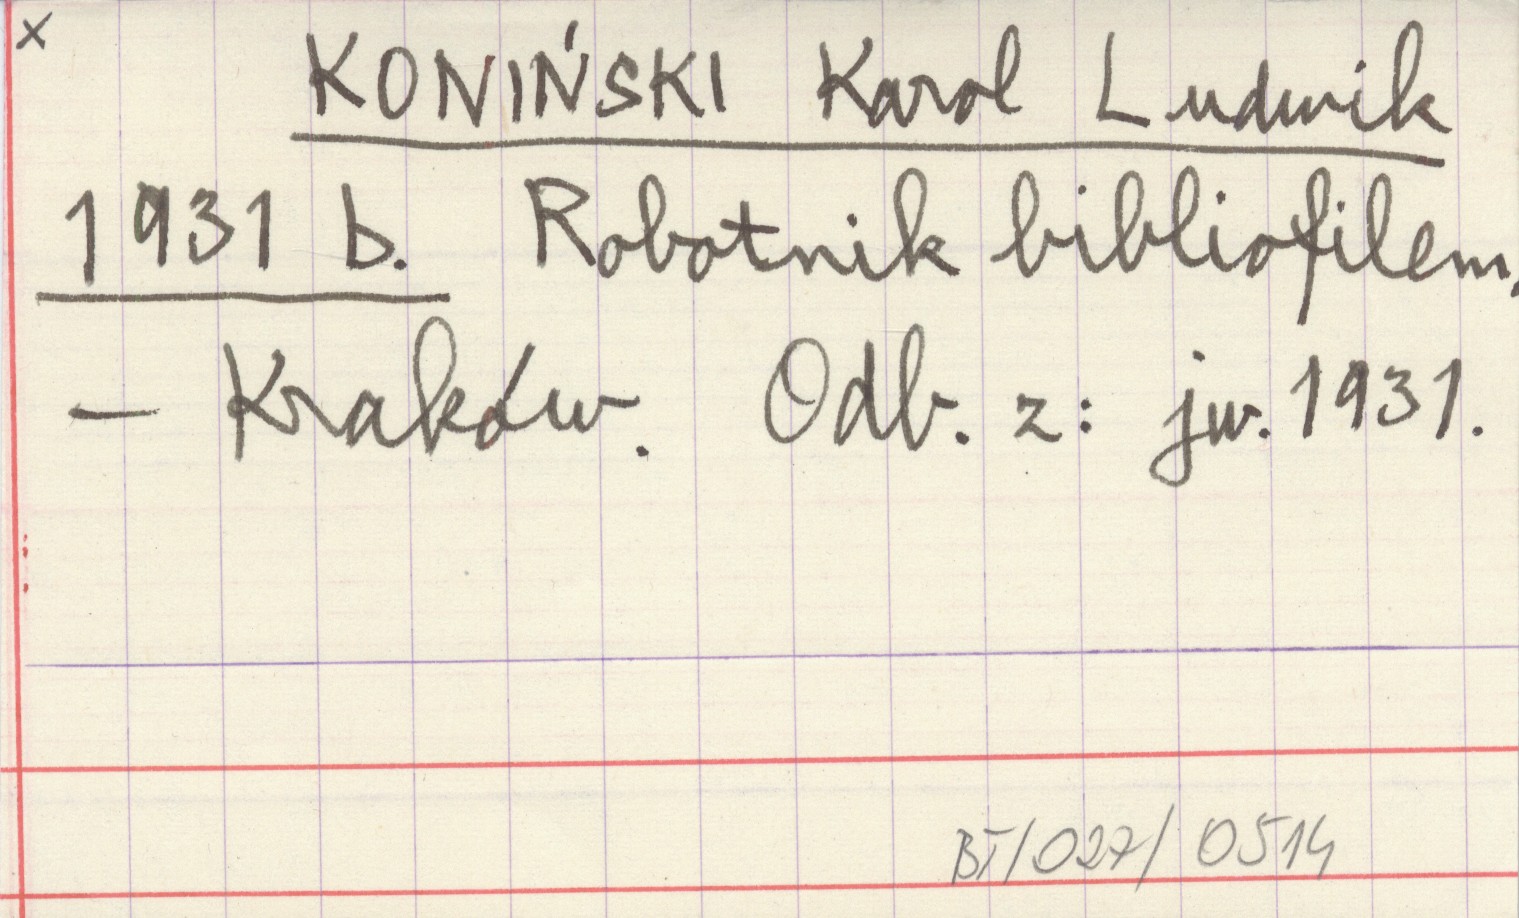 x
KONIŃSKI Karol Ludwik
1931 b. Robotnik bibliofilem.
– Kraków. Odb. z: jw. 1931.
BT/027/0514